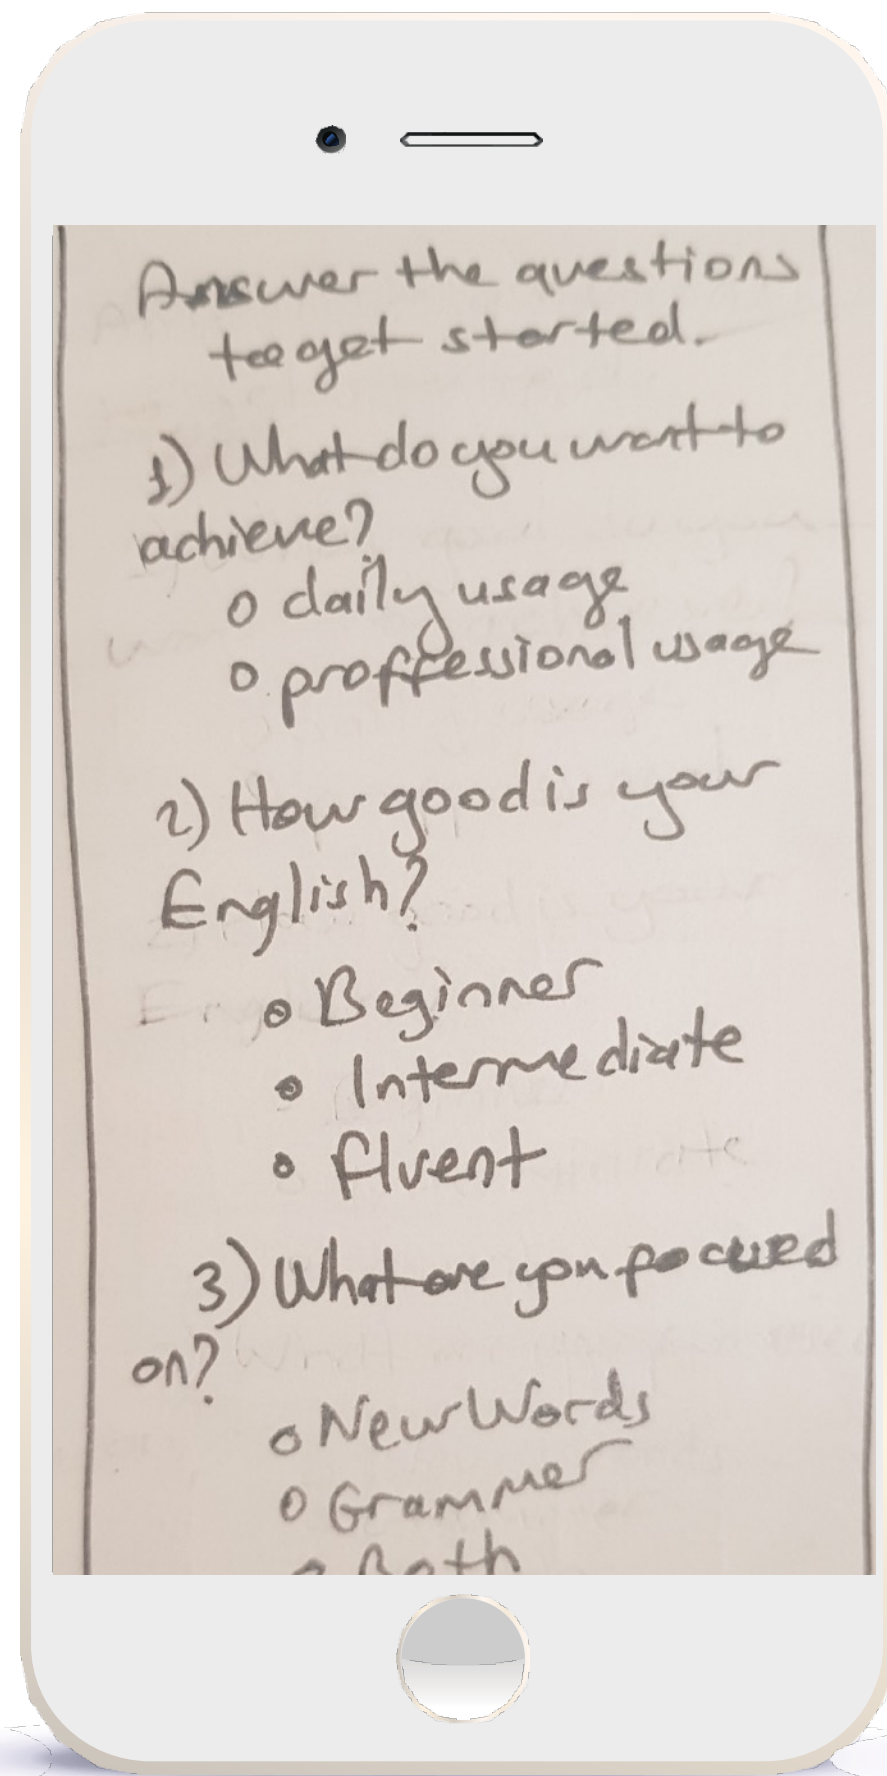 Answer the questions
to get started.
1) What do you want to
achieve?
o daily usage
o proffessional usage
2) How good is your
English?
o Beginner
o Intermediate
o fluent
3) What are you focused
on?
o New Words
o Grammer
o Both